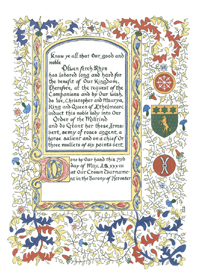 Know ye all that Our good and
noble
has labored long and hard for
the benefit of Our Kingdom,
Therefore, at the request of the
Companions and by Our wish,
do We, Christopher and Maurya,
King and Queen of Æthelmearc
induct this noble lady into Our
Order of the Millrind
and do Grant her these Arms:
Vert, semy of roses argent, a
horse salient and on a chief Or
three mullets of six points vert.
Done by Our hand this
day of May, A.S.
at Our Crown Tourname-
nt in the Barony of